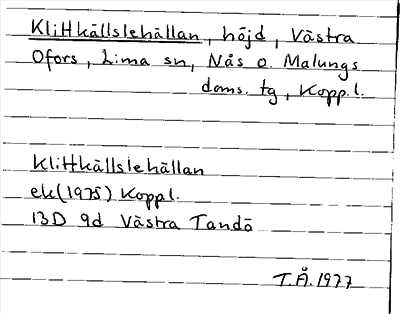 Klittkällslehållan, höjd, Västra
Ofors, Lima sn, Nås o. Malungs
doms. tg, Kopp.l.
Klittkällslehållan
ek(1975) Koppl.
13D 9d Västra Tandö
T.Å.1977